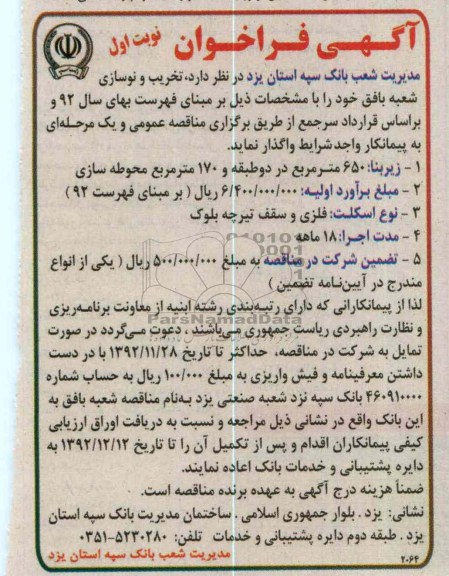 آگهی فراخوان نوبت اول
مدیریت شعب بانک سپه استان یزد در نظر دارد، تخریب و نوسازی
شعبه بافق خود را با مشخصات ذیل بر مبنای فهرست بهای سال ۹۲ و
براساس قرارداد سرجمع از طریق برگزاری مناقصه عمومی و یک مرحله‌ای
به پیمانکار واجد شرایط واگذار نماید.
۱ - زیربنا: ۶۵۰ مترمربع در دوطبقه و ۱۷۰ مترمربع محوطه سازی
۲ - مبلغ برآورد اولیه: ۶/۴۰۰/۰۰۰/۰۰۰ ریال ( بر مبنای فهرست ۹۲ )
۳ - نوع اسکلت: فلزی و سقف تیرچه بلوک
۴ - مدت اجرا: ۱۸ ماهه
۵ - تضمین شرکت در مناقصه به مبلغ ۵۰۰/۰۰۰/۰۰۰ ریال ( یکی از انواع
مندرج در آیین‌نامه تضمین )
ParsNamadData
لذا از پیمانکارانی که دارای رتبه‌بندی رشته ابنیه از معاونت برنامه‌ریزی
و نظارت راهبردی ریاست جمهوری می‌باشند ، دعوت می‌گردد در صورت
تمایل به شرکت در مناقصه، حداکثر تا تاریخ ۱۳۹۲/۱۱/۲۸ با در دست
داشتن معرفینامه و فیش واریزی به مبلغ ۱۰۰/۰۰۰ ریال به حساب شماره
۴۶۰۹۱۰۰۰۰ بانک سپه نزد شعبه صنعتی یزد به‌نام مناقصه شعبه بافق به
این بانک واقع در نشانی ذیل مراجعه و نسبت به دریافت اوراق ارزیابی
کیفی پیمانکاران اقدام و پس از تکمیل آن را تا تاریخ ۱۳۹۲/۱۲/۱۲ به
دایره پشتیبانی و خدمات بانک اعاده نمایند.
ضمناً هزینه درج آگهی به عهده برنده مناقصه است.
نشانی: یزد . بلوار جمهوری اسلامی . ساختمان مدیریت بانک سپه استان
یزد . طبقه دوم دایره پشتیبانی و خدمات تلفن: ۵۲۳۰۲۸۰-۰۳۵۱
مدیریت شعب بانک سپه استان یزد
۲۰۶۴